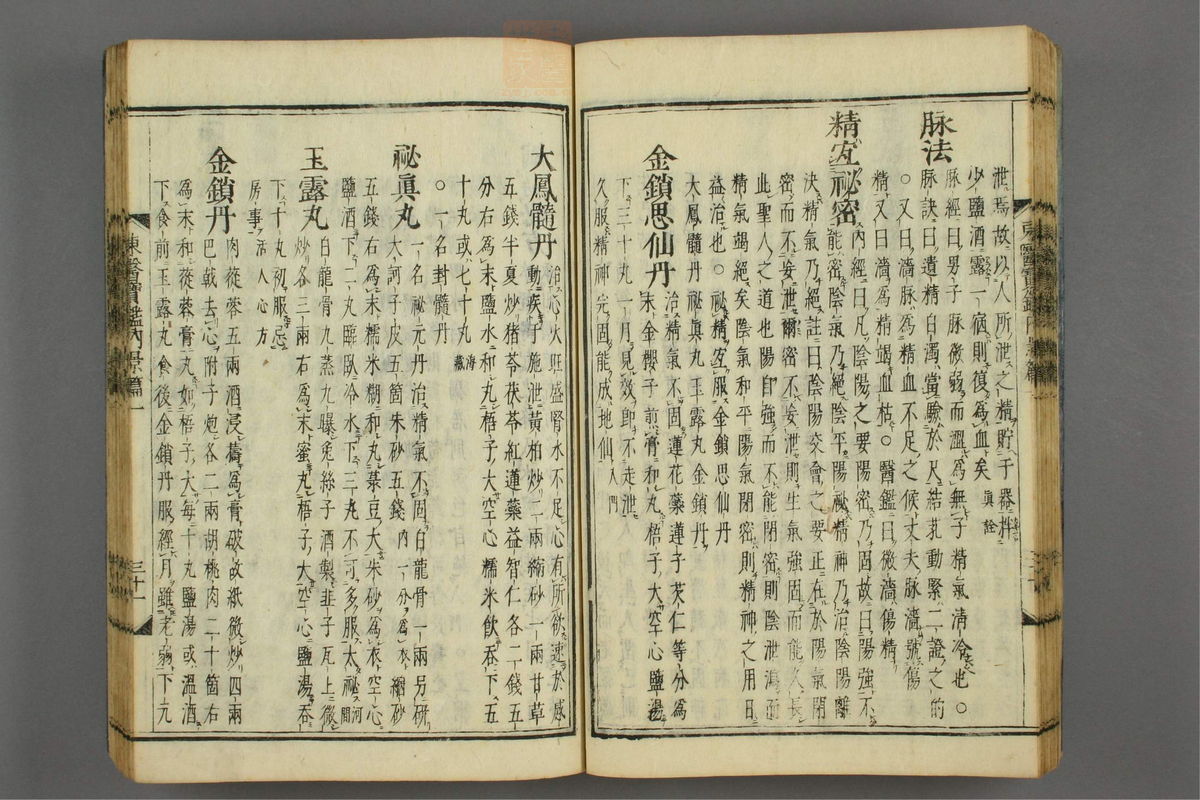 泄焉故以人所泄之精貯于器拌
少鹽酒露一宿則復爲血矣眞詮
脉法
脉經曰男子脉微弱而澀爲無子精氣淸冷也○
脉訣曰遺精白濁當驗於尺結芤動緊二證之的
○又曰濇脉爲精血不足之候丈夫脉濇號傷
精又曰濇爲精竭血枯○醫鑑曰微濇傷精
精宜祕密
內經曰凡陰陽之要陽密乃固故曰陽強不
能密陰氣乃絕陰平陽祕精神乃治陰陽離
決精氣乃絕註曰陰陽交會之要正在於陽氣閉
密而不妄泄爾密不妄泄則生氣強固而能久長
此聖人之道也陽自強而不能閉密則陰泄瀉而
精氣竭絕矣陰氣和平陽氣閉密則精神之用日
益治也○祕精宜服金鎖思仙丹
大鳳髓丹祕眞丸玉露丸金鎖丹
金鎖思仙丹
治精氣不固蓮花蘂蓮子芡仁等分爲
末金櫻子煎膏和丸梧子大空心鹽湯
下三十丸一月見效卽不走泄
久服精神完固能成地仙入門
大鳳髓丹
治心火旺盛腎水不足心有所欲速於感
動疾於施泄黃柏炒二兩縮砂一兩甘草
五錢半夏炒猪苓茯苓紅蓮蘂益智仁各二錢五
分右爲末鹽水和丸梧子大空心糯米飮吞下五
十丸或七十丸海藏
○一名封髓丹
祕眞丸
一名祕元丹治精氣不固白龍骨一兩另硏
大訶子皮五箇朱砂五錢內一分爲衣縮砂
五錢右爲末糯米糊和丸菉豆大朱砂爲衣空心
鹽酒下二丸臨臥冷水下三丸不可多服太祕河間
玉露丸
白龍骨九蒸九曝兎絲子酒製韭子瓦上微
炒各三兩右爲末蜜丸梧子大空心鹽湯吞
下十丸初服忌
房事活人心方
金鎖丹
肉蓯蓉五兩酒浸擣爲膏破故紙微炒四兩
巴戟去心附子炮各二兩胡桃肉二十箇右
爲末和蓯蓉膏丸如梧子大每十丸鹽湯或溫酒
下食前玉露丸食後金鎖丹服經月雖老弱下元
東醫寶鑑內景篇一
三十一